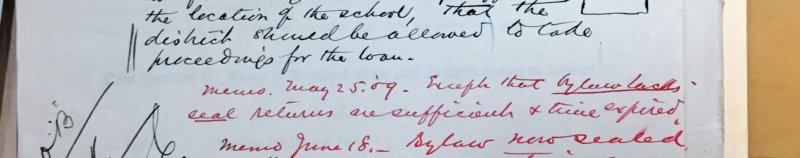 the location of the school, that the
district should be allowed to take
proceedings for the loan.
memo. May 25.'09. Except that bylaw lacks
seal returns are sufficient & time expired.
memo June 18. — Bylaw now sealed.